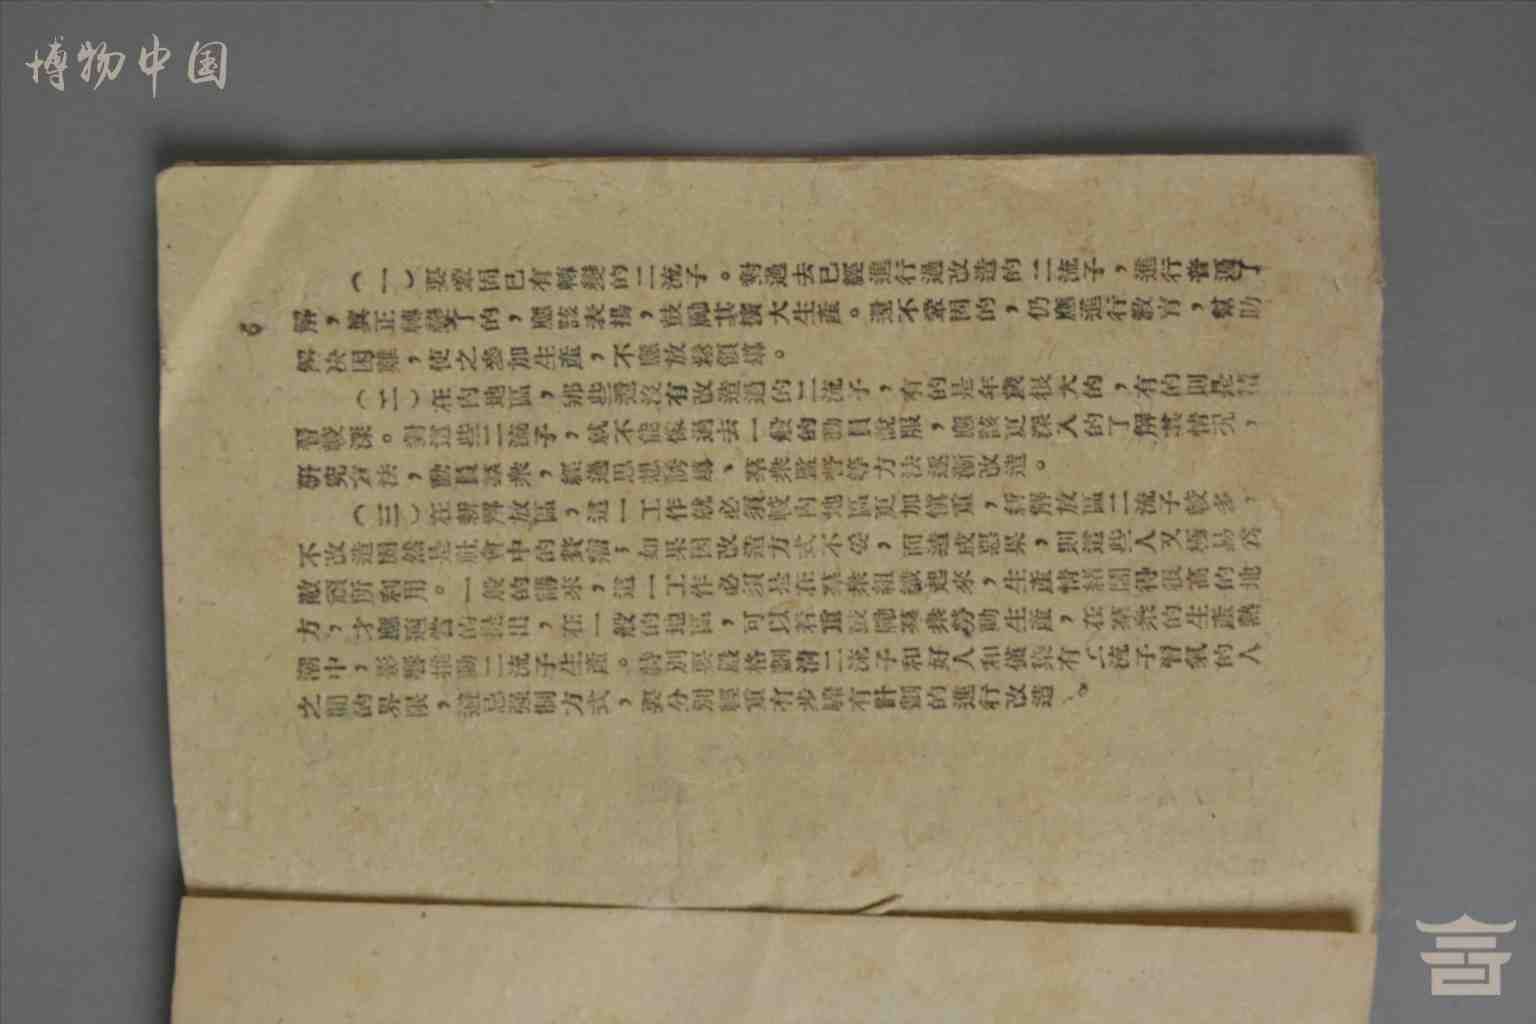 博物中国
（一）要鞏固已有轉變的二流子。對過去已經進行過改造的二流子，進行普遍了
解，真正轉變了的，應該表揚，鼓勵其擴大生產。還不鞏固的，仍應進行教育，幫助
解决困難，使之參加生產，不應放鬆領導。
（二）在內地區，那些還沒有改造過的二流子，有的是年歲很大的，有的則是惰
習較深。對這些二流子，就不能像過去一般的動員說服，應該更深入的了解其情况，
研究方法，動員羣衆，經過思想誘導、羣衆監督等方法逐漸改造。
（三）在新解放區，這一工作就必須較內地區更加慎重，新解放區二流子較多，
不改造固然是社會中的贅瘤，如果因改造方式不妥，而造成惡果，則這些人又極易為
敵頑所利用。一般的講來，這一工作必須是在羣衆組織起來，生產情緒開得很高的地
方，才應適當的提出，在一般的地區，可以着重鼓勵羣衆勞動生產，在羣衆的生產熱
潮中，影響推動二流子生產。特別要嚴格劃清二流子和好人和僅染有二流子習氣的人
之間的界限，避忌强制方式，要分別輕重有步驟有計劃的進行改造。
6